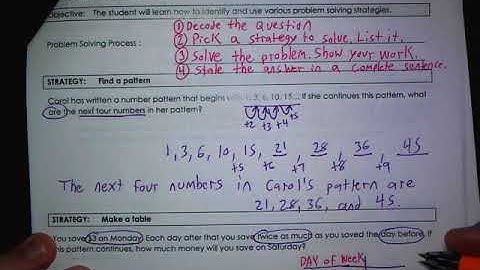 Objective: The student will learn how to identify and use various problem solving strategies.
Problem Solving Process:
① Decode the Question
② Pick a strategy to solve. List it.
③ Solve the problem. Show your work.
④ State the answer in a complete sentence.
STRATEGY: Find a pattern
Carol has written a number pattern that begins with 1, 3, 6, 10, 15... If she continues this pattern, what
are the next four numbers in her pattern?
+2 +3 +4 +5
1, 3, 6, 10, 15, 21, 28, 36, 45
+5 +6 +7 +8 +9
The next four numbers in Carol's pattern are
21, 28, 36, and 45.
STRATEGY: Make a table
You save $3 on Monday. Each day after that you save twice as much as you saved the day before. If
this pattern continues, how much money will you save on Saturday?
DAY OF WEEK